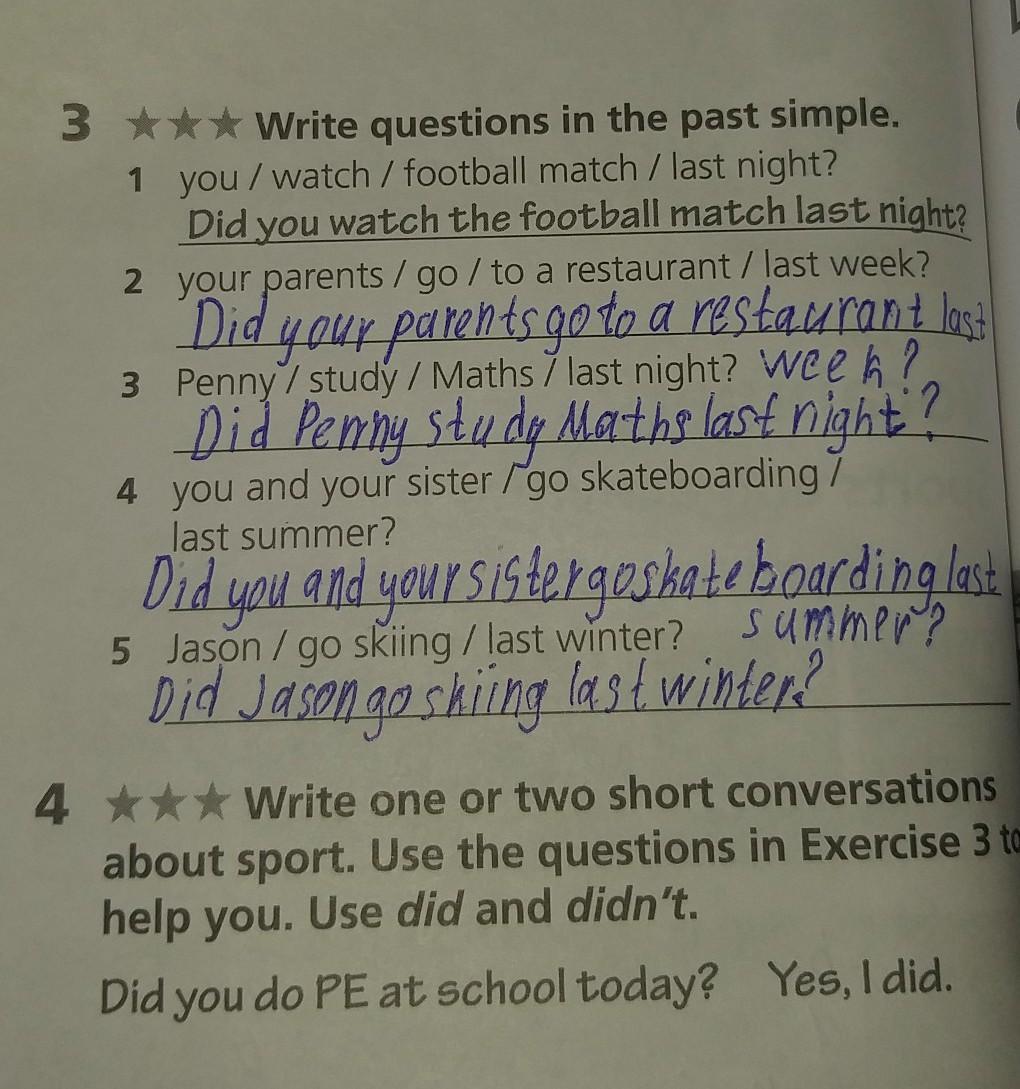 3 ★★★ Write questions in the past simple.
1 you / watch / football match / last night?
Did you watch the football match last night?
2 your parents / go / to a restaurant / last week?
Did your parents go to a restaurant last
3 Penny / study / Maths / last night? week?
Did Penny study Maths last night?
4 you and your sister / go skateboarding /
last summer?
Did you and your sister go skateboarding last
summer?
5 Jason / go skiing / last winter?
Did Jason go skiing last winter?
4 ★★★ Write one or two short conversations
about sport. Use the questions in Exercise 3 to
help you. Use did and didn't.
Did you do PE at school today? Yes, I did.